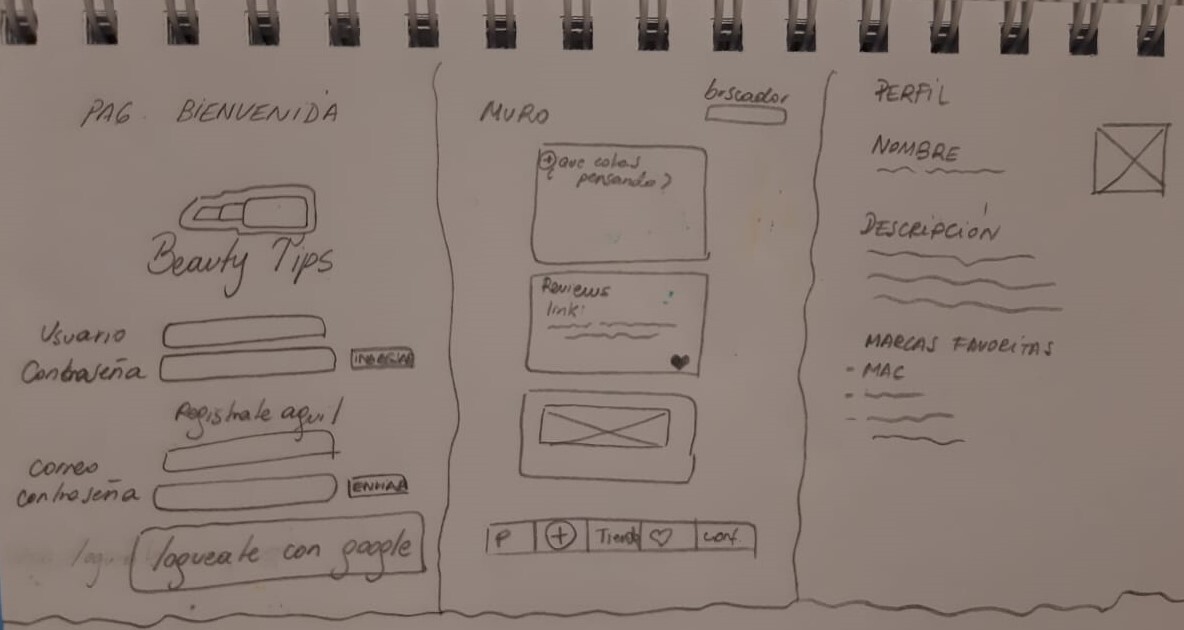 PAG. BIENVENIDA
Beauty Tips
Usuario
Contraseña
INGRESAR
Registrate aquí
Correo
contraseña
ENVIAR
logueate con google
MURO
buscador
¿que estas
pensando?
Reviews
link:
P
Tienda
conf.
PERFIL
NOMBRE
DESCRIPCIÓN
MARCAS FAVORITAS
- MAC